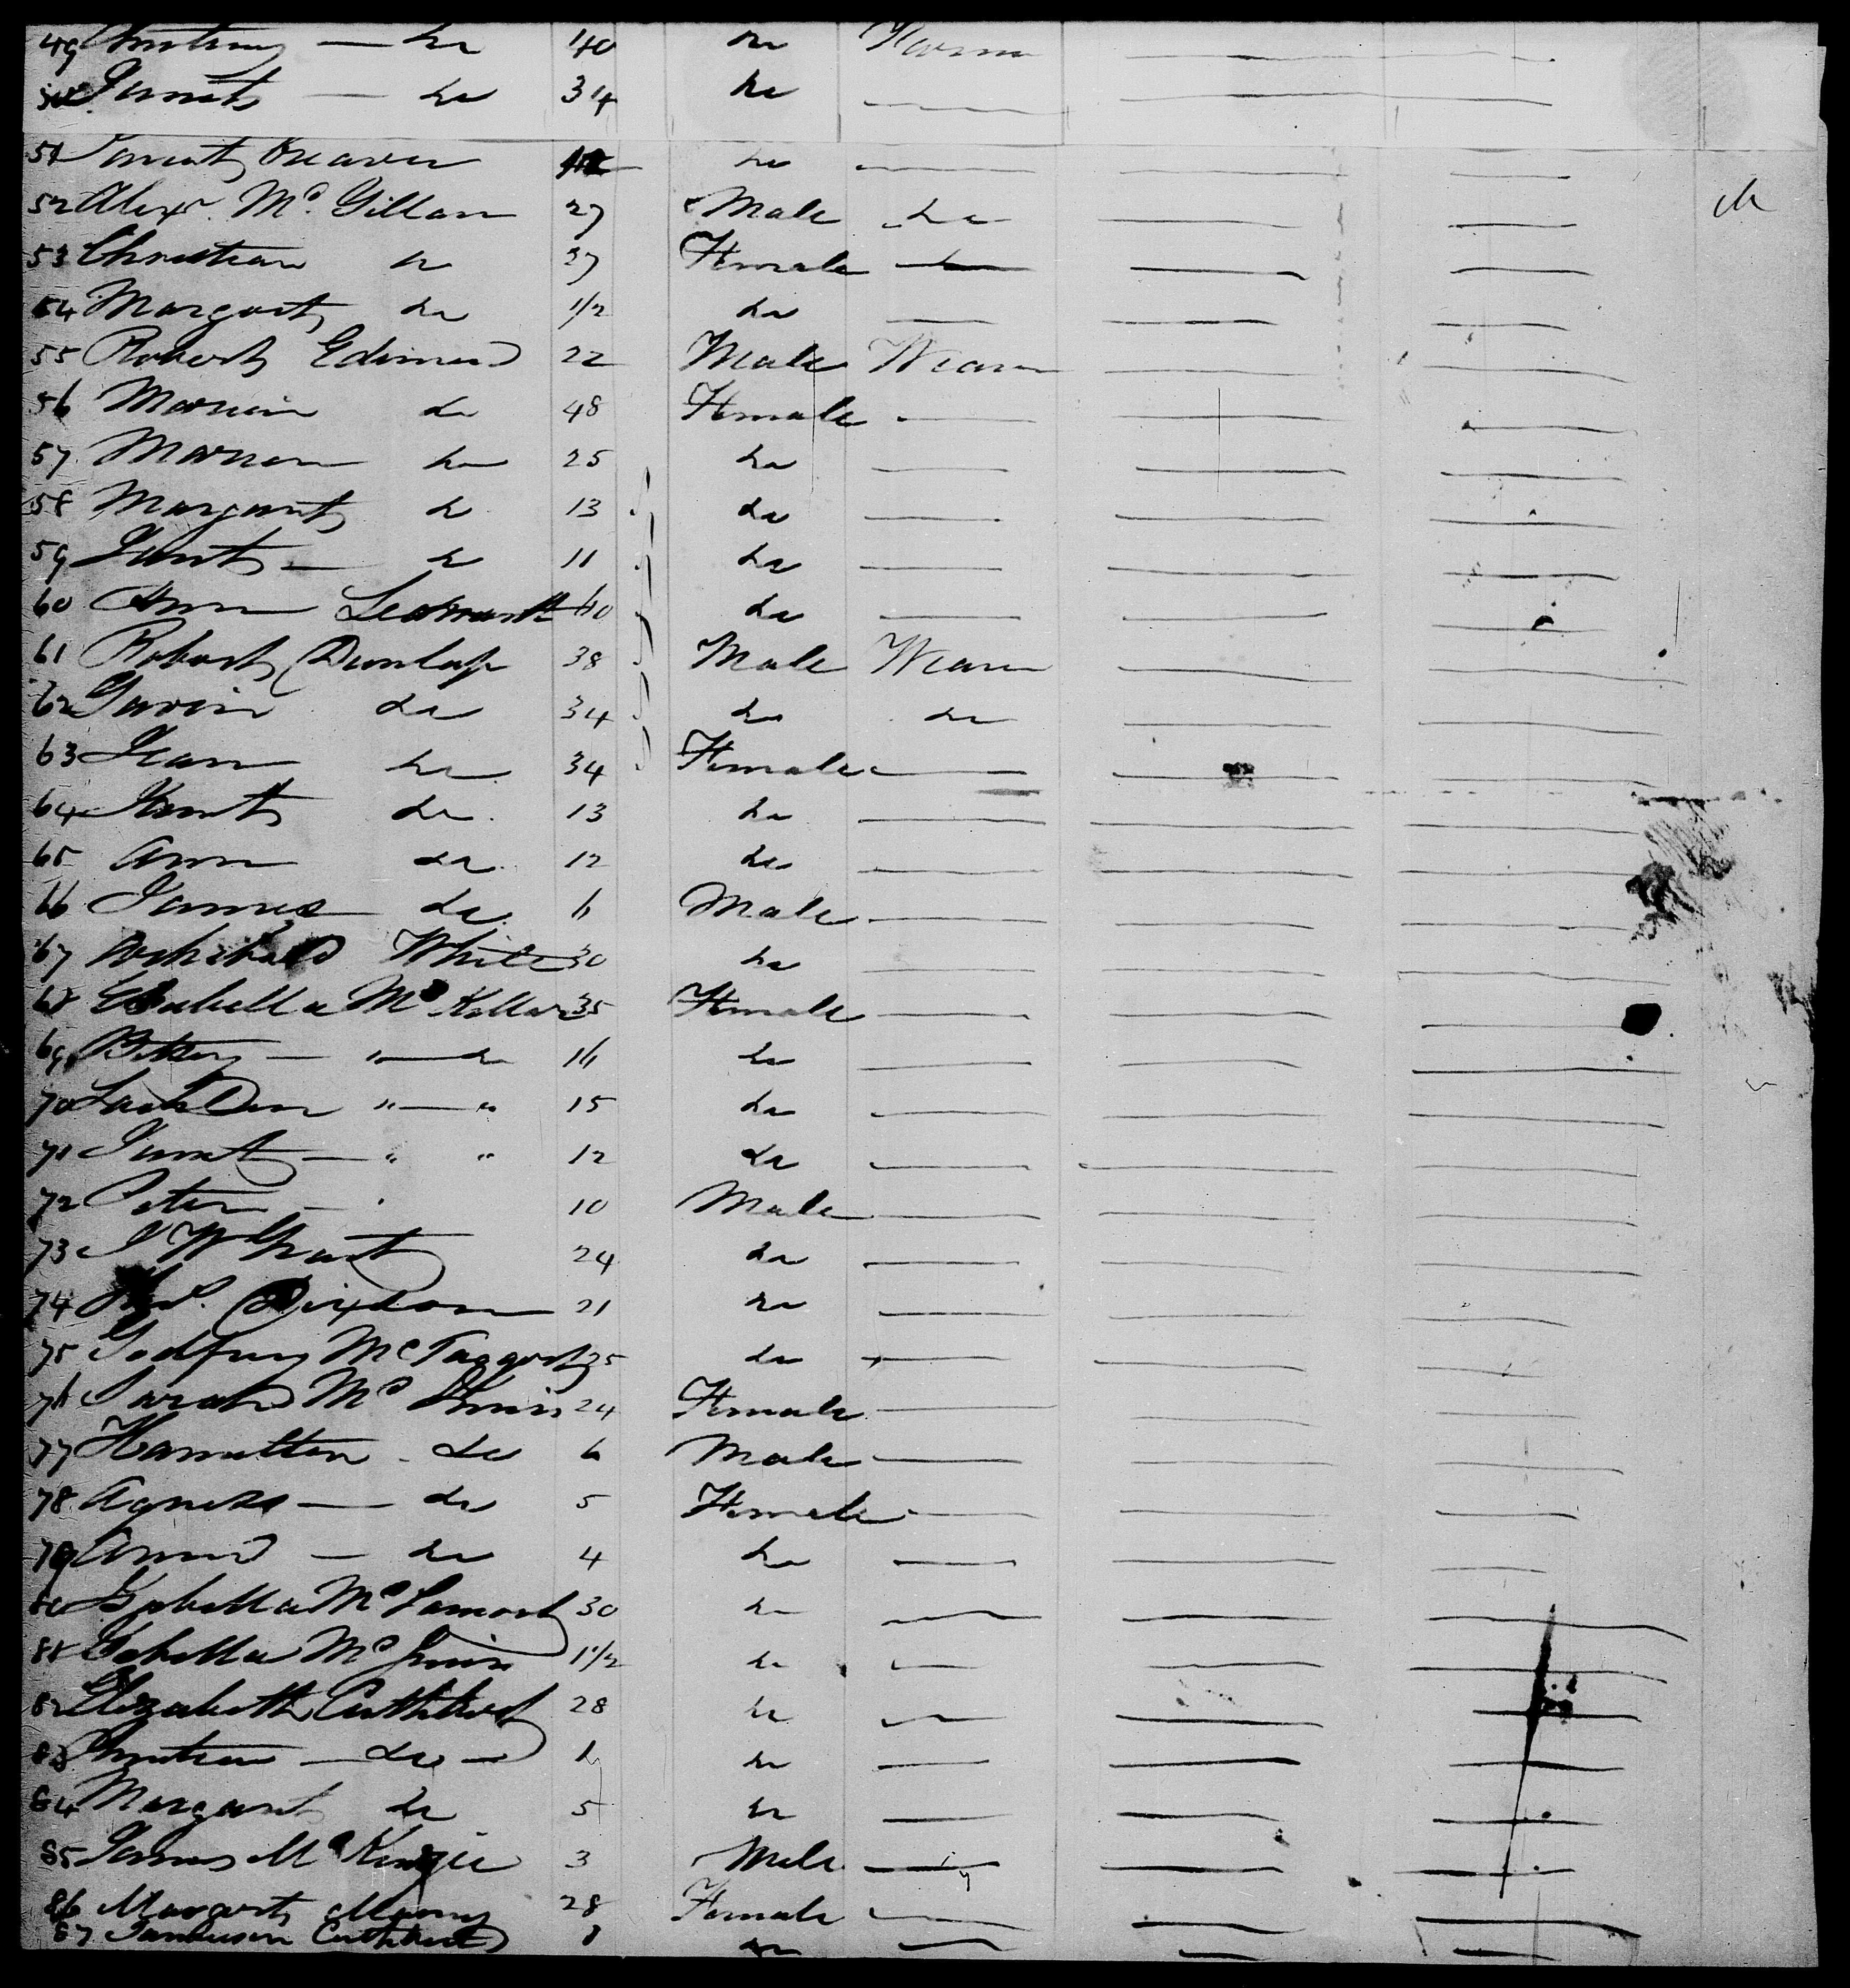 49 — do 40 do
50 Janet — do 34 do
51 Janet Weaver do
52 Alexr. McGillan 27 Male do
53 Christian do 27 Female
54 Margart do 1/2 do
55 Robert Edmund 22 Male Weaver
56 Marion do 48 Female
57 Marion do 25 do
58 Margart do 13 do
59 Janet — do 11 do
60 Ann 40 do
61 Robert Dunlap 38 Male Weaver
62 Gavin do 34 do do
63 Jean do 34 Female
64 Janet do 13 do
65 Ann do 12 do
66 James do 6 Male
67 Archibald White 30 do
68 Isabella McKellar 35 Female
69 Betsy — " — do 16 do
70 " — " 15 do
71 Janet — " " 12 do
72 Peter — " 10 Male
73 J W Grant 24 do
74 Dixson 21 do
75 Godfrey McTaggart 25 do
76 Sarah Mc 24 Female
77 Hamilton do 6 Male
78 Agness — do 5 Female
79 — do 4 do
80 Isabella McLamont 30 do
81 Isabella Mc 1 1/2 do
82 Elizabeth Cuthbert 28 do
83 Christian — do — do
84 Margart do 5 do
85 James McKenzie 3 Male
86 Margart 28 Female
87 Cuthbert do